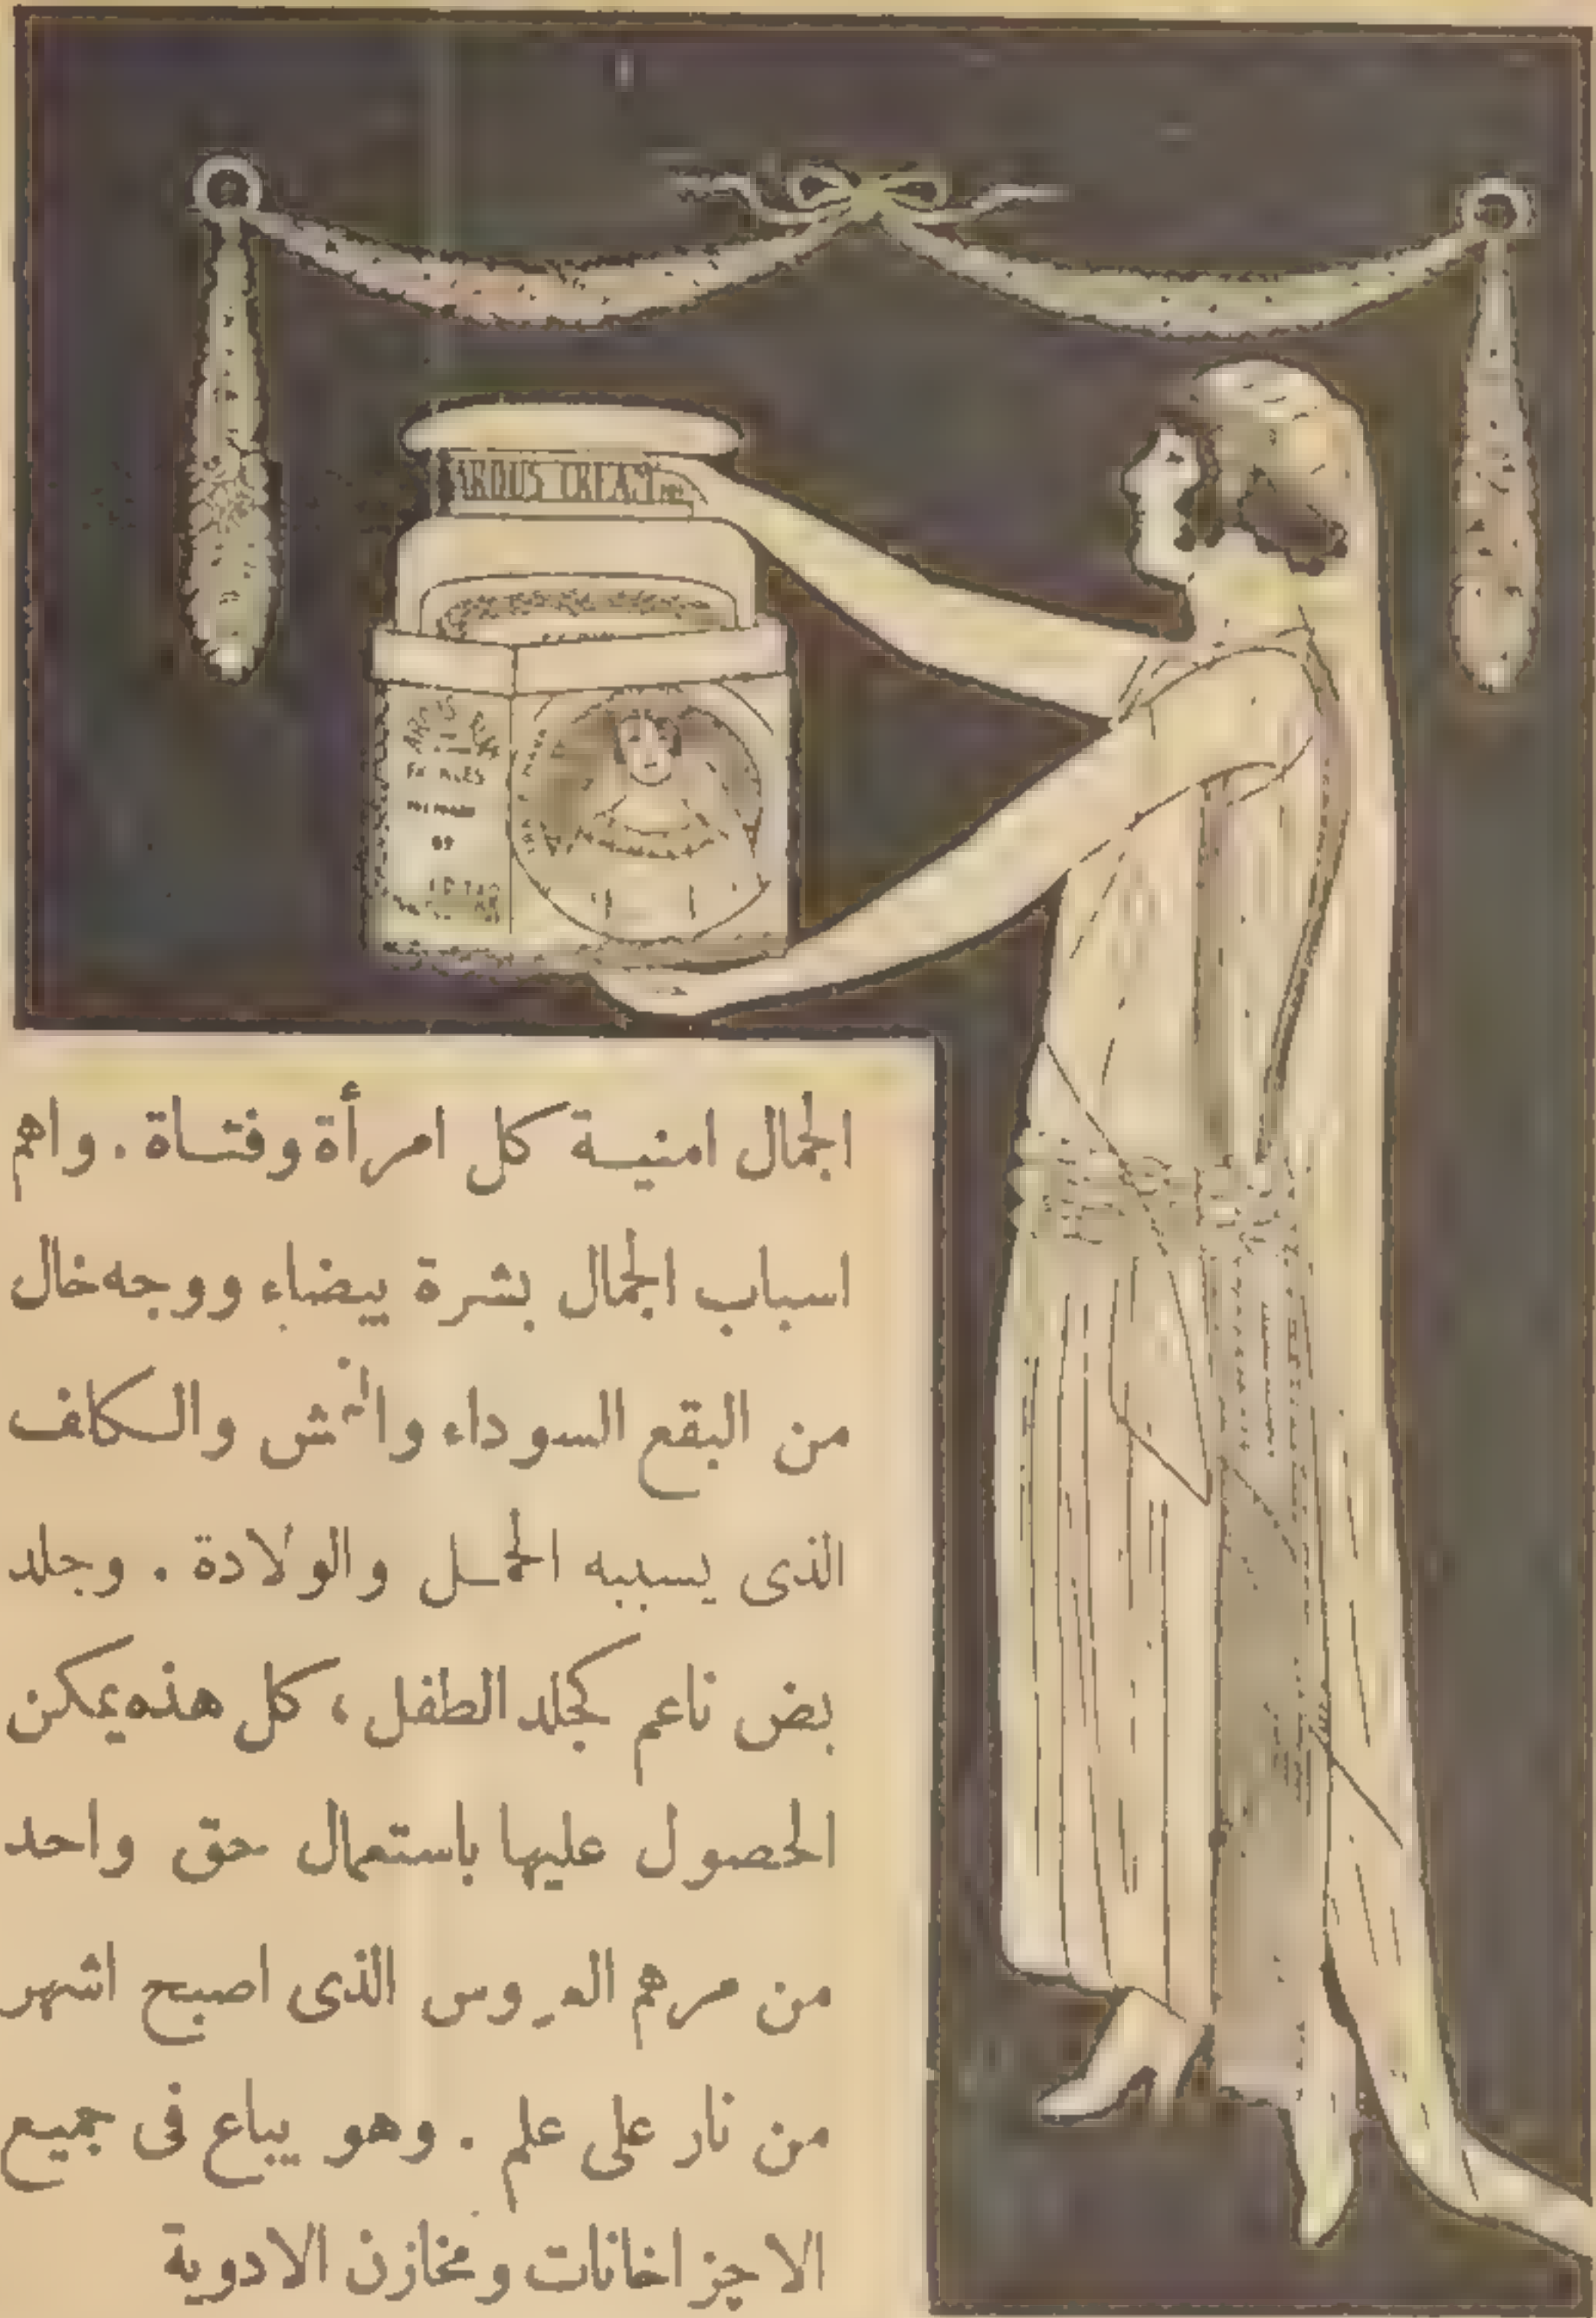 AROUS CREAM
الجمال امنيـة كل امرأة وفتـاة . واهم
اسباب الجمال بشرة بيضاء ووجه خال
من البقع السوداء والنمش والكلف
الذى يسببه الحمـل والولادة . وجلد
بض ناعم كجلد الطفل ، كل هذه يمكن
الحصول عليها باستعمال حق واحد
من مرهم العروس الذى اصبح اشهر
من نار على علم . وهو يباع فى جميع
الاجزاخانات ومخازن الادوية